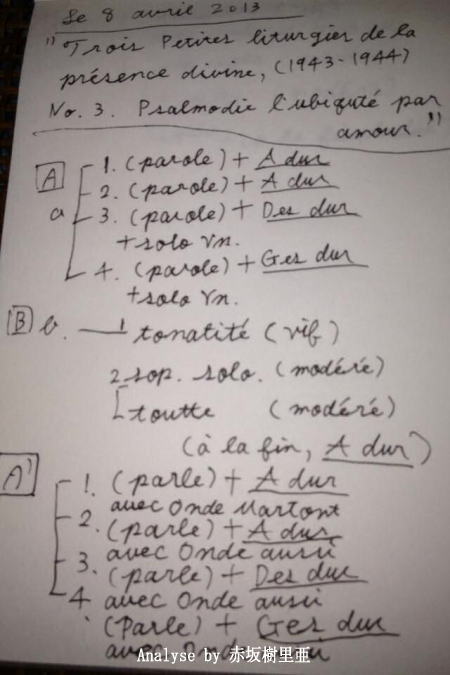 Le 8 avril 2013
"Trois Petites liturgies de la
présence divine, (1943-1944)
No. 3. Psalmodie l'ubiquté par
amour."
A
a
1. (parole) + A dur
2. (parole) + A dur
3. (parole) + Des dur
+ solo Vn.
4. (parole) + Ges dur
+ solo Vn.
B b. 1 tonatité (vif)
2 sop. solo. (modéré)
toutte (modéré)
(à la fin, A dur)
A'
1. (parle) + A dur
avec Onde Martont
2. (parle) + A dur
avec Onde aussi
3. (parle) + Des dur
4 avec Onde aussi
(Parle) + Ges dur
avec Onde aussi
Analyse by 赤坂樹里亜